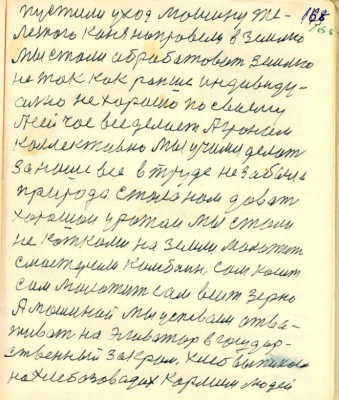 188
пустили уход машину же-
лезного коня направели в землю
мы стали обрабатоват землю
не так как ранше индивиду-
ално не хорошо по своему
А сей час все делает Агроном
коллективно мы учили делат
за наше все в труде не забыла
природа стала нам доват
хорошои урожаи мы стали
не котками на земли молотит
смастерили комбаин. сам косит
сам молотит сам веит зерно
А машинай мы успевали отва-
живат на эливатор в госудор-
ственный закром. Хлеб выпикали
на хлебозаводах кормили людей